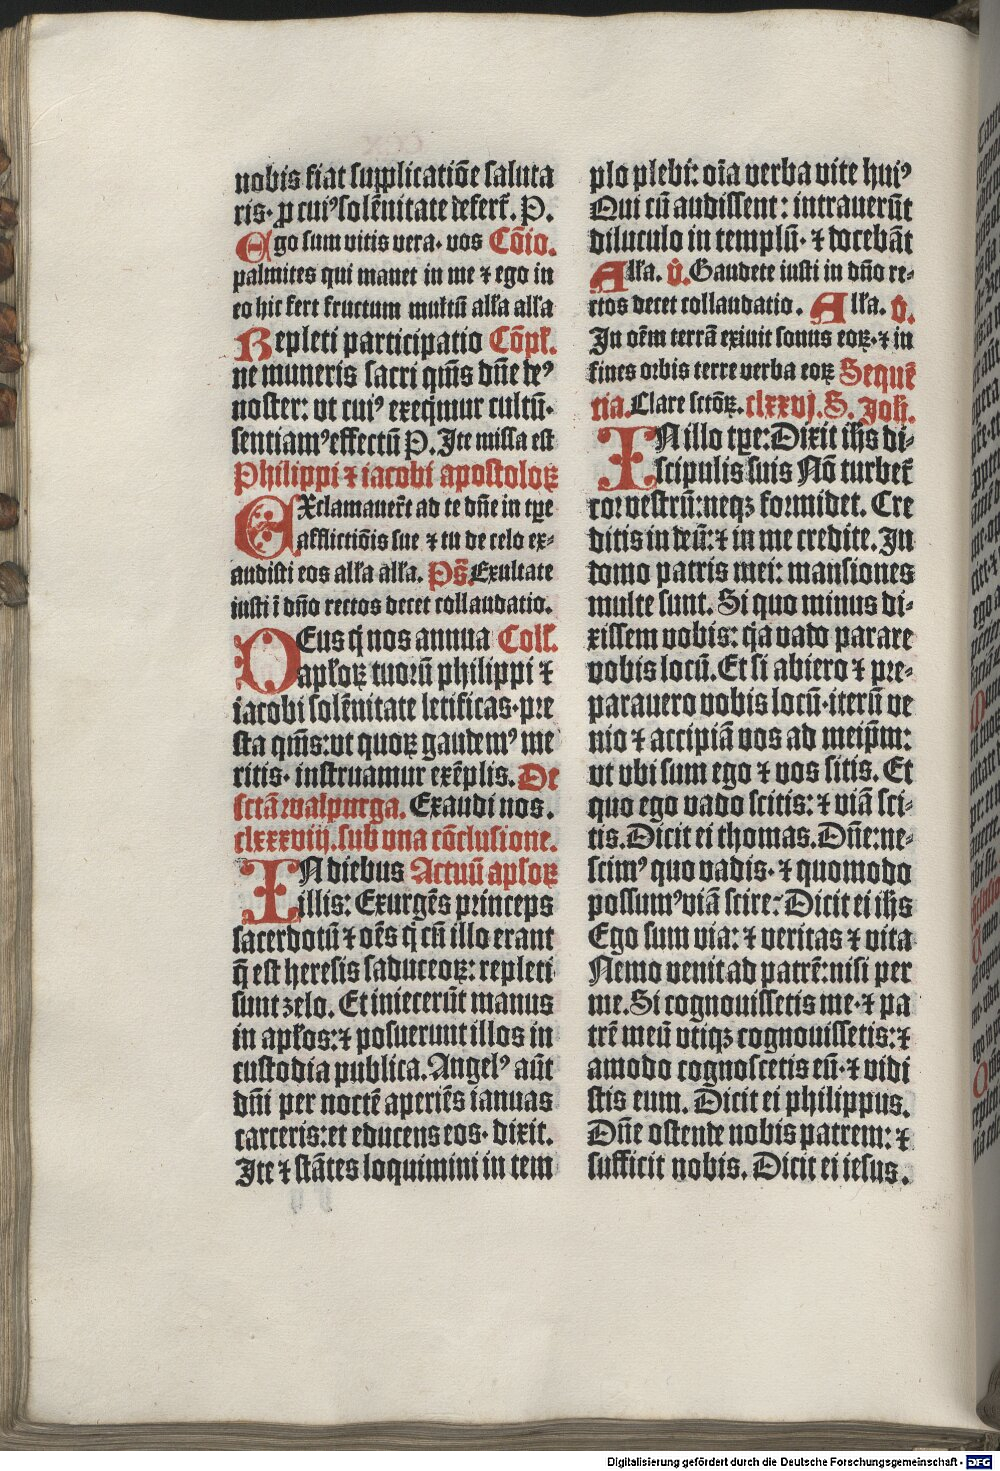 nobis fiat supplicatiōe saluta
ris· ꝓ cuiꝰ solēnitate defert̄. P.
Ego sum vitis vera· vos Cōio.
palmites qui manet in me ⁊ ego in
eo hic fert fructum multū alla alla
Repleti participatio Cōpl̄.
ne muneris sacri qm̄s dn̄e deꝰ
noster: vt cuiꝰ exeqimur cultū·
sentiamꝰ effectū P. Ite missa est
Philippi ⁊ iacobi apostoloꝝ
EXclamauer̄t ad te dn̄e in tꝑe
afflictiōis sue ⁊ tu de celo ex⸗
audisti eos alla alla. Ps̄. Exultate
iusti ī dn̄o rectos decet collaudatio.
DEus q̇ nos annua Coll̄.
apl̄oꝝ tuorū philippi ⁊
iacobi solēnitate letificas· pre
sta qm̄s: vt quoꝝ gaudemꝰ me
ritis· instruamur exēplis. De
sctā walpurga. Exaudi nos.
clxxxviij. sub vna cōclusione.
IN diebus Actuū apl̄oꝝ
illis: Exurgēs princeps
sacerdotū ⁊ oēs q̇ cū illo erant
q̄ est heresis saduceoꝝ: repleti
sunt zelo. Et iniecerūt manus
in apl̄os: ⁊ posuerunt illos in
custodia publica. Angelꝰ aūt
dn̄i per noctē aperiēs ianuas
carceris: et educens eos· dixit.
Ite ⁊ stātes loquimini in tem
plo plebi: oīa verba vite huiꝰ
Qui cū audissent: intrauerūt
diluculo in templū· ⁊ docebāt
Alla. v̄. Gaudete iusti in dn̄o re⸗
ctos decet collaudatio. Alla. v̄.
In oēm terrā exiuit sonus eoꝝ· ⁊ in
fines orbis terre verba eoꝝ Sequē
tia. Clare sctōꝝ. clxxvj. S. Joh̄.
IN illo tꝑe: Dixit ih̄s di⸗
scipulis suis Nō turbet̄
cor vestrū: neqꝫ formidet. Cre
ditis in deū: ⁊ in me credite. In
domo patris mei: mansiones
multe sunt. Si quo minus di⸗
xissem vobis: q̇a vado parare
vobis locū. Et si abiero ⁊ pre⸗
parauero vobis locū· iterū ve
nio ⁊ accipiā vos ad meip̄m:
vt vbi sum ego ⁊ vos sitis. Et
quo ego vado scitis: ⁊ viā sci⸗
tis. Dicit ei thomas. Dn̄e: ne⸗
scimꝰ quo vadis· ⁊ quomodo
possumꝰ viā scire: Dicit ei ih̄s
Ego sum via: ⁊ veritas ⁊ vita
Nemo venit ad patrē: nisi per
me. Si cognouissetis me· ⁊ pa
trē meū vtiqꝫ cognouissetis: ⁊
amodo cognoscetis eū· ⁊ vidi
stis eum. Dicit ei philippus.
Dn̄e ostende nobis patrem: ⁊
sufficit nobis. Dicit ei iesus.
Digitalisierung gefördert durch die Deutsche Forschungsgemeinschaft - DFG